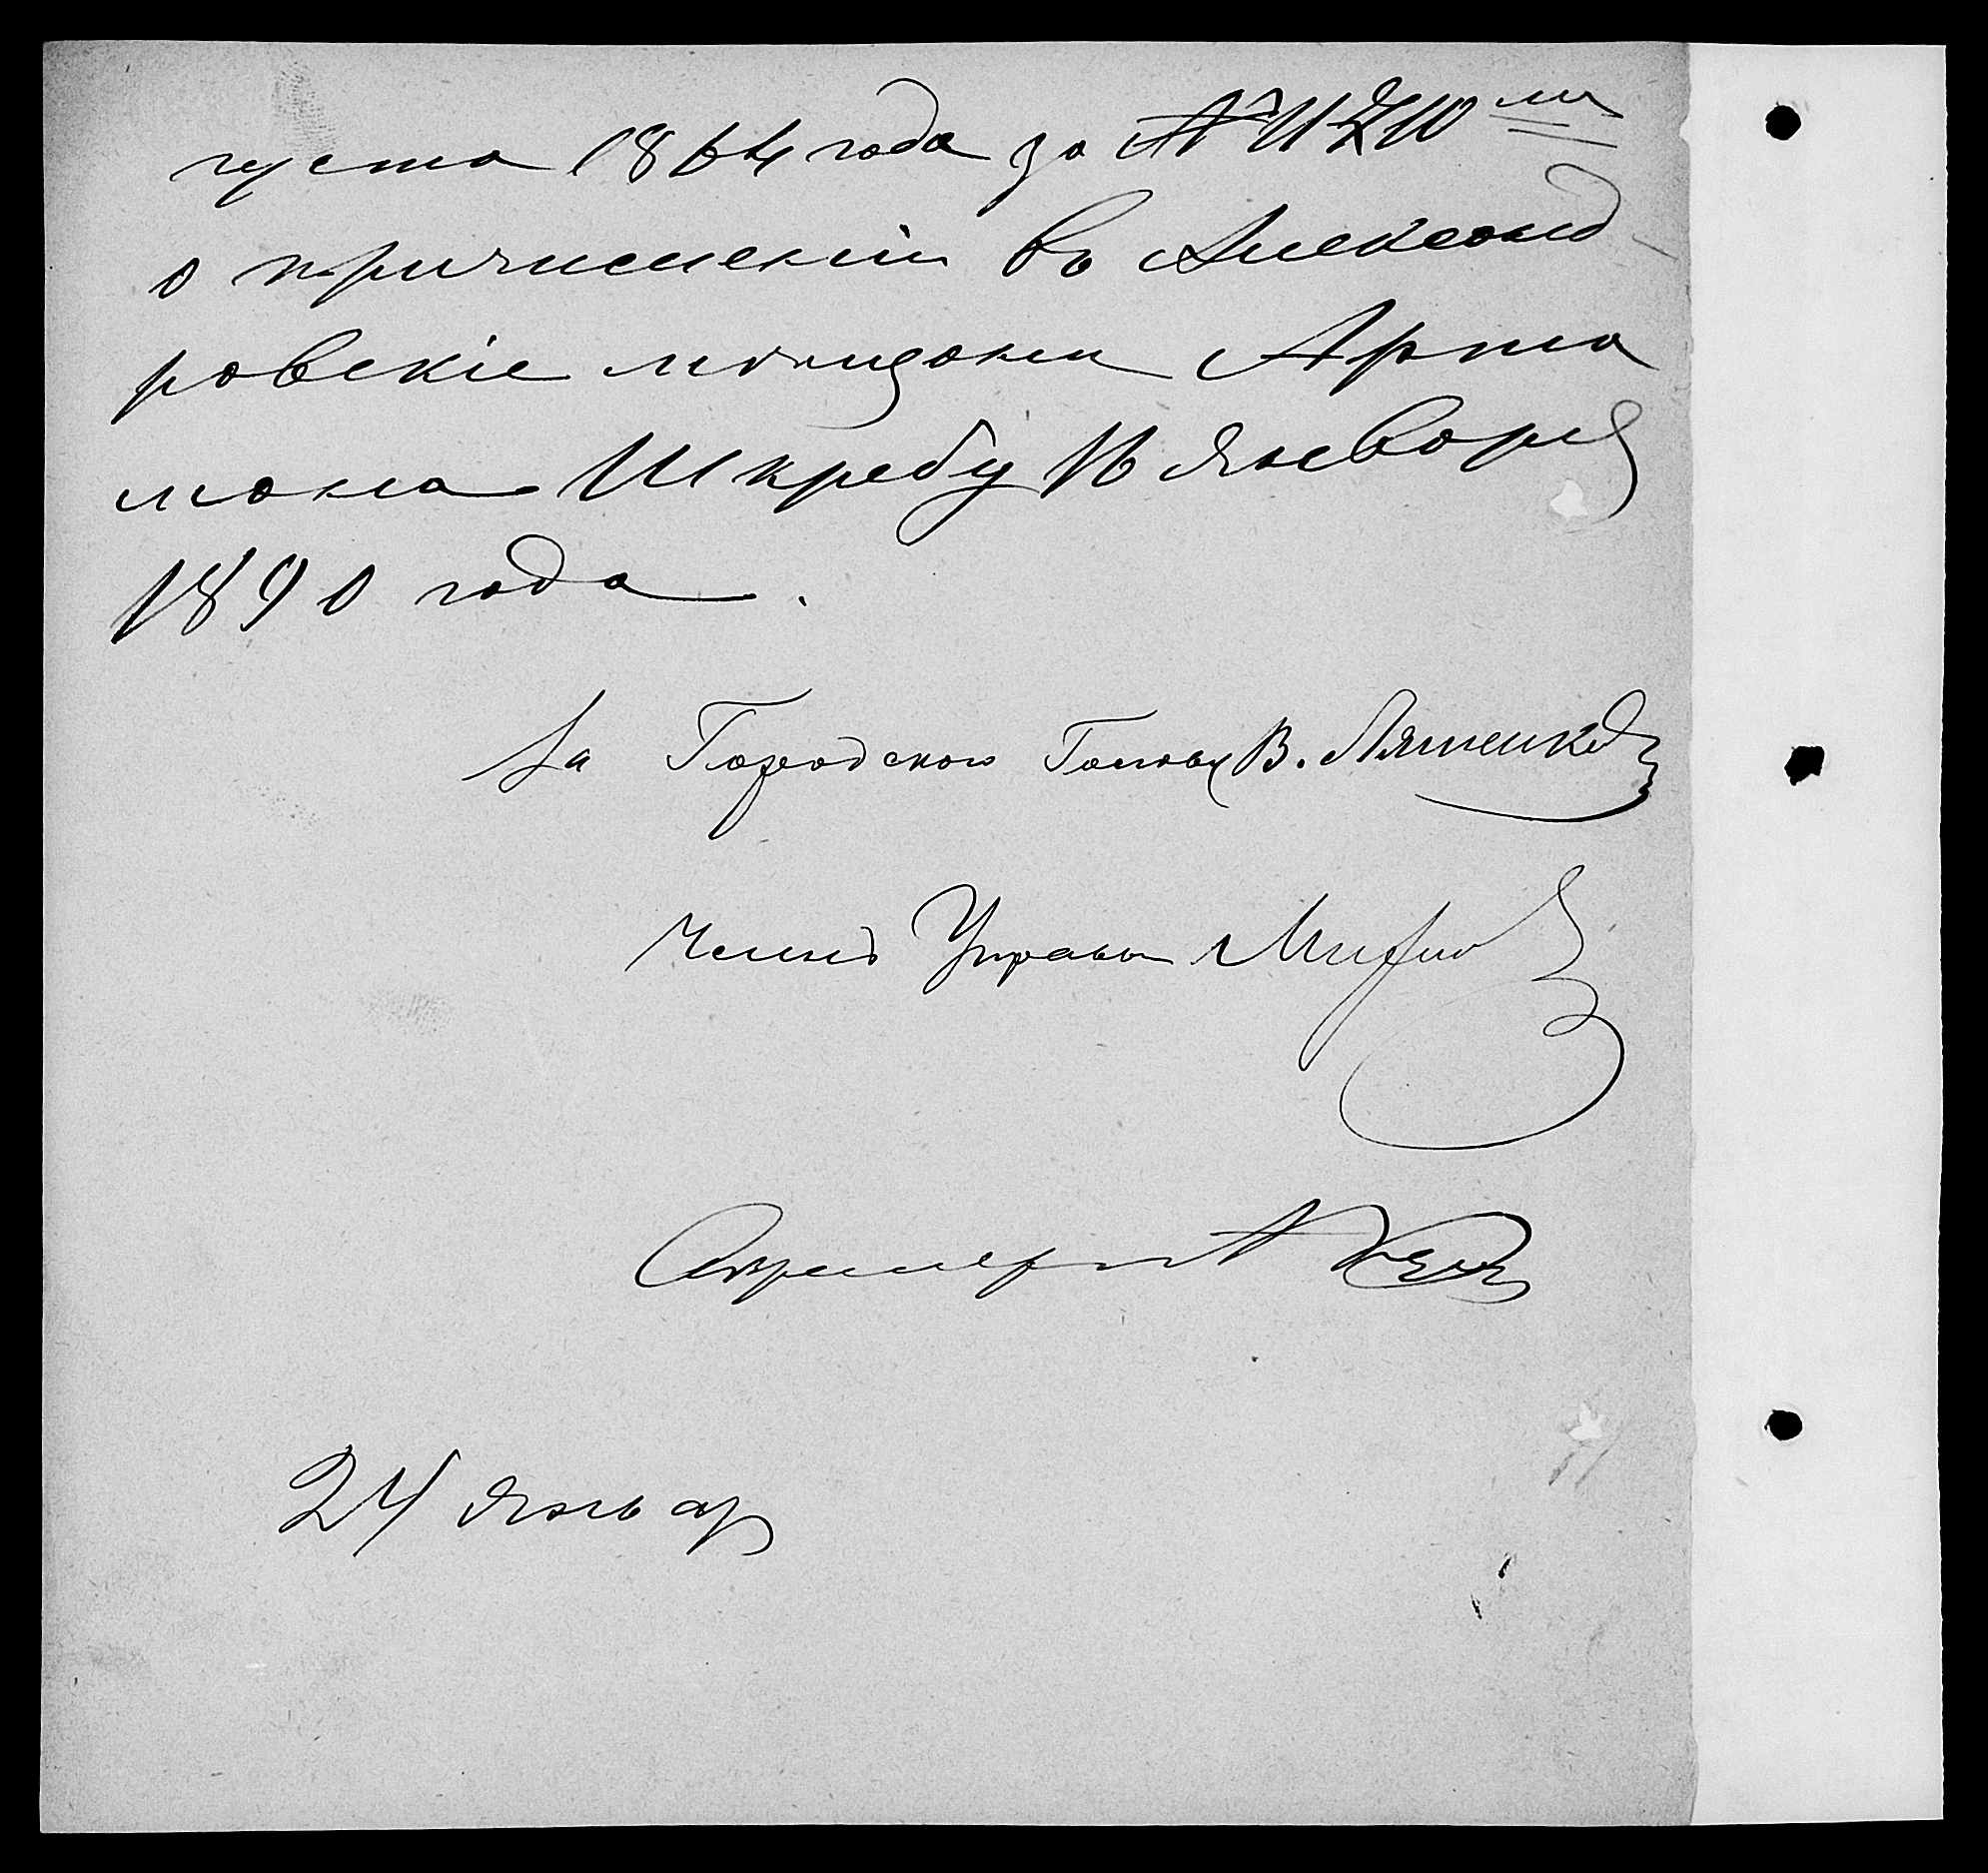 густа 1864 года за №
о причисленіи въ Александ-
ровскіе мѣщане Арта
мона Шкребу 16 января
1890 года.
За Городского Голову В. Ляшенко
Членъ Управы
Секретарь
24 январ